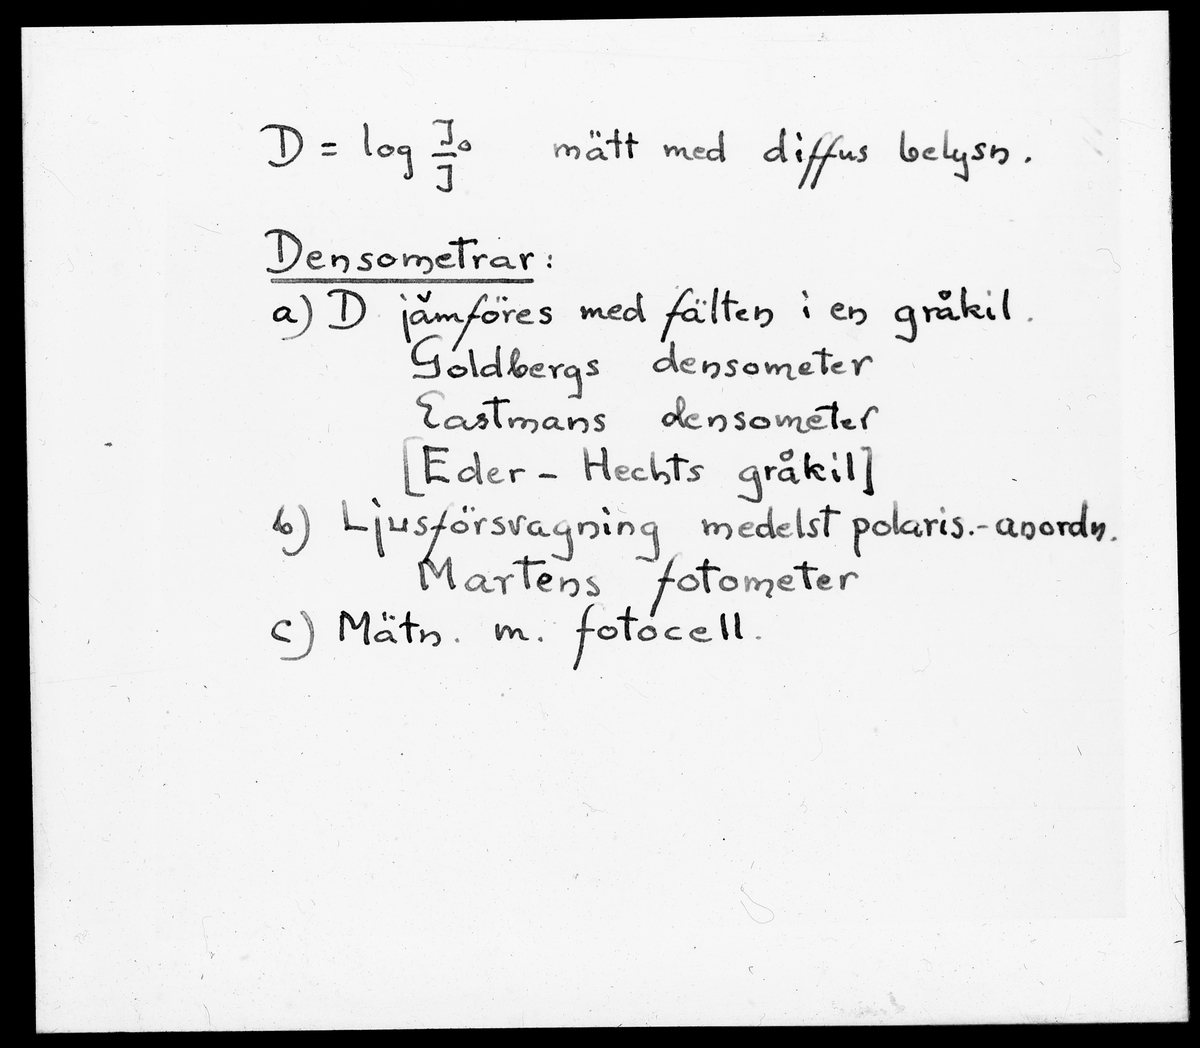 D = log J₀/J mätt med diffus belysn.
Densometrar:
a) D jämföres med fälten i en gråkil.
Goldbergs densometer
Eastmans densometer
[Eder - Hechts gråkil]
b) Ljusförsvagning medelst polaris.-anordn.
Martens fotometer
c) Mätn. m. fotocell.